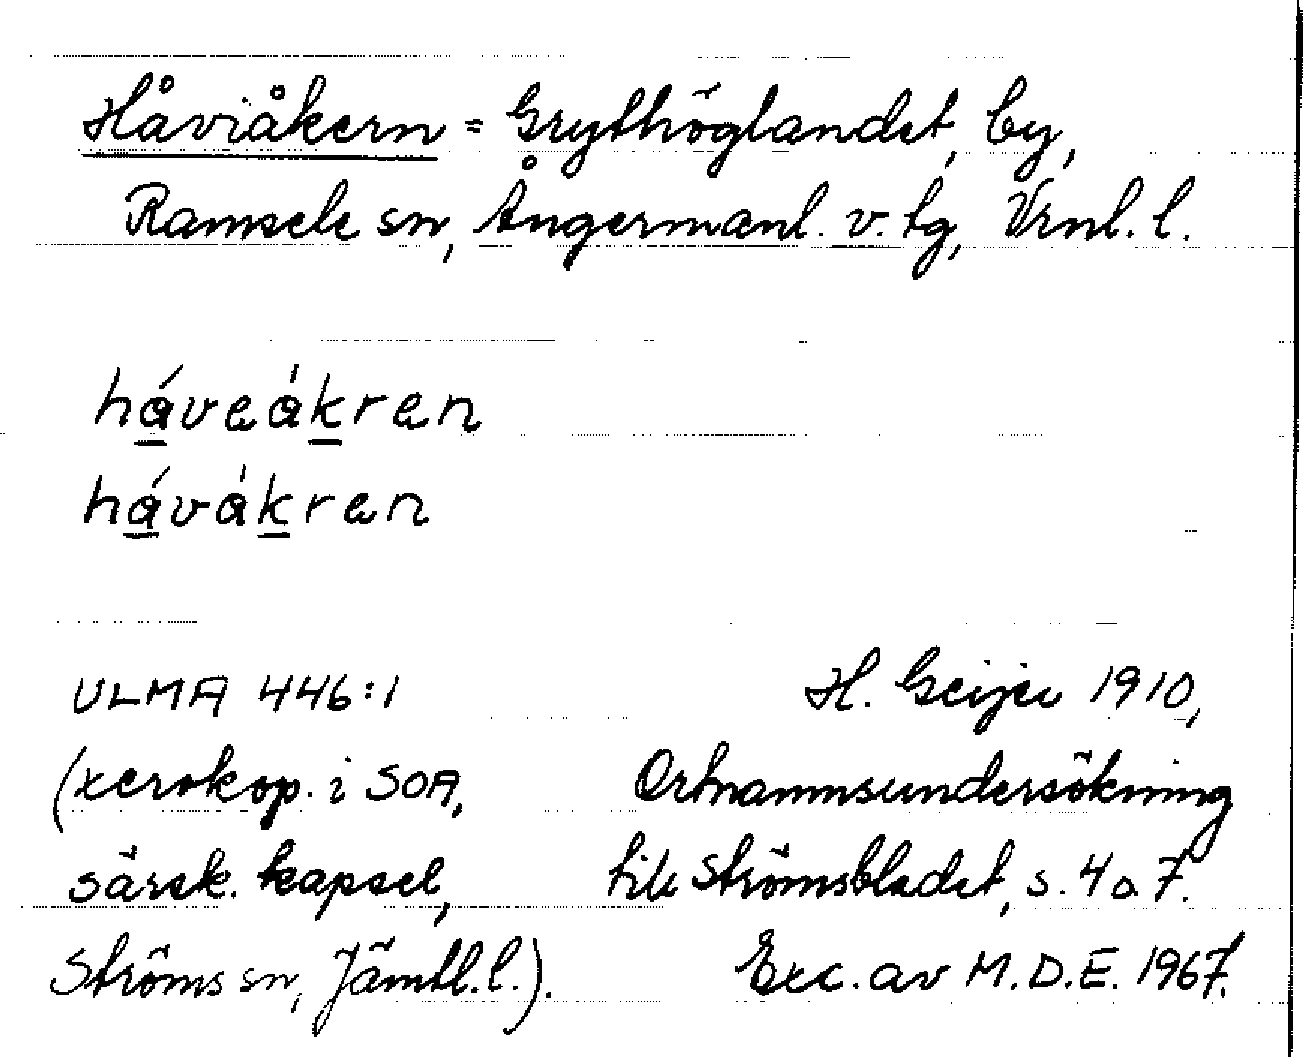 Håviåkern = Grythöglandet, by,
Ramsele sn, Ångermanl. v. tg, Vrnl. l.
háveákren
hávákren
ULMA 446:1
H. Geijer 1910,
(xerokop. i SOA,
Ortnamnsundersökning
särsk. kapsel,
till Strömsbladet, s. 4 o 7.
Ströms sn, Jämtl. l.).
Exc. av M.D.E. 1967.